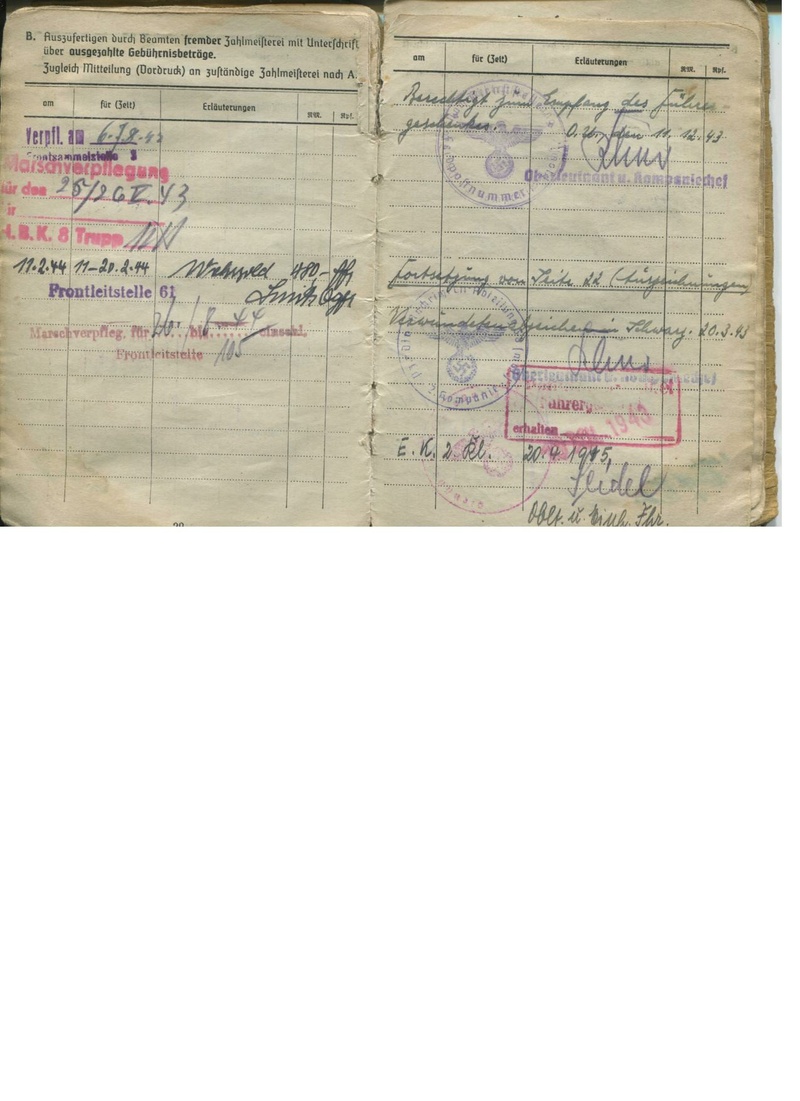 B. Auszufertigen durch Beamten fremder Zahlmeisterei mit Unterschrift
über ausgezahlte Gebührnisbeträge.
Zugleich Mitteilung (Vordruck) an zuständige Zahlmeisterei nach A.
am für (Zeit) Erläuterungen RM. Rpf.
Verpfl. am
Frontsammelstelle 3
Marschverpflegung
für den 25/26 V. 43
8 Trupp
11.2.44 11-20.2.44 Wehrsold 480,-
Frontleitstelle 61
Marschverpfleg. für bis einschl.
Frontleitstelle 105
am für (Zeit) Erläuterungen RM. Rpf.
Berechtigt zum Empfang des Führer-
geschenkes. O.U., den 11.12.43
Oberleutnant u. Kompaniechef
Fortsetzung von Seite 22 (Auszeichnungen)
Verwundetenabzeichen in Schwarz. 20.3.43
Oberleutnant u. Kompaniechef
erhalten
E.K. 2. Kl. 20.4.1945,
Seidel
Oblt. u. Einh. Fhr.